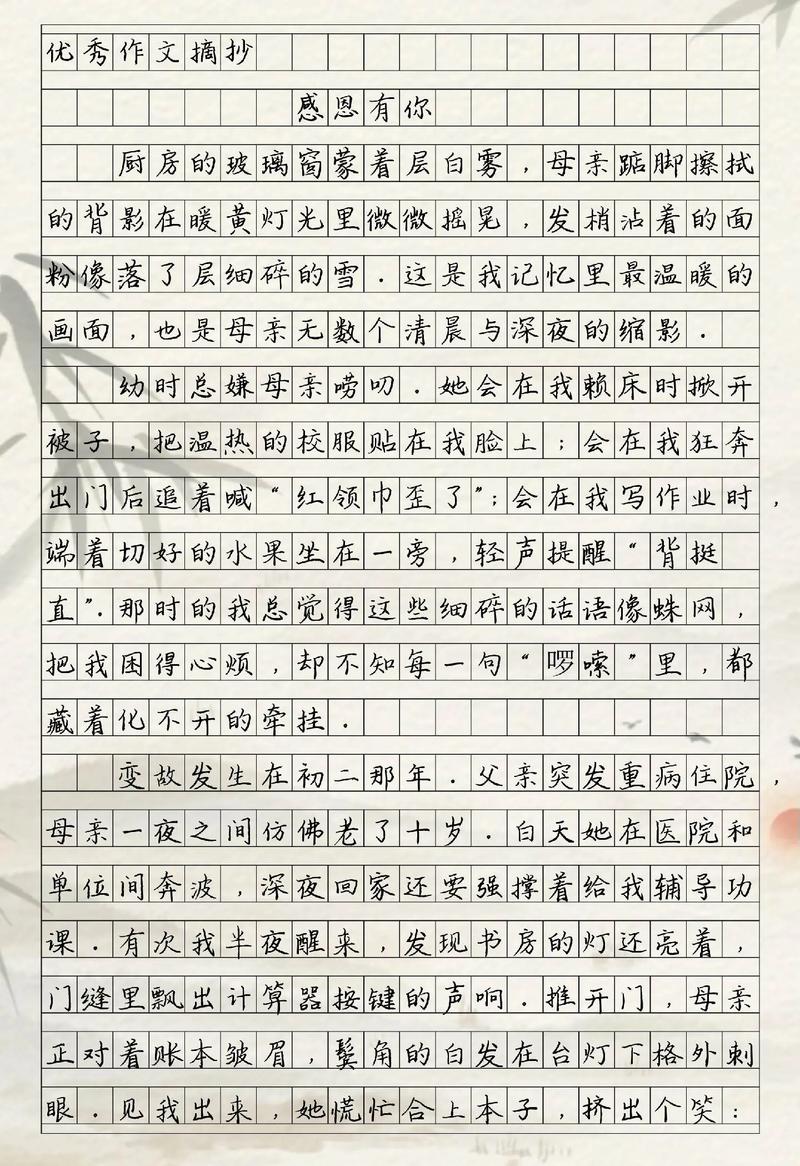 优秀作文摘抄
感恩有你
厨房的玻璃窗蒙着层白雾，母亲踮脚擦拭
的背影在暖黄灯光里微微摇晃，发梢沾着的面
粉像落了层细碎的雪．这是我记忆里最温暖的
画面，也是母亲无数个清晨与深夜的缩影．
幼时总嫌母亲唠叨．她会在我赖床时掀开
被子，把温热的校服贴在我脸上；会在我狂奔
出门后追着喊“红领巾歪了”；会在我写作业时，
端着切好的水果坐在一旁，轻声提醒“背挺
直”．那时的我总觉得这些细碎的话语像蛛网，
把我困得心烦，却不知每一句“啰嗦”里，都
藏着化不开的牵挂．
变故发生在初二那年．父亲突发重病住院，
母亲一夜之间仿佛老了十岁．白天她在医院和
单位间奔波，深夜回家还要强撑着给我辅导功
课．有次我半夜醒来，发现书房的灯还亮着，
门缝里飘出计算器按键的声响．推开门，母亲
正对着账本皱眉，鬓角的白发在台灯下格外刺
眼．见我出来，她慌忙合上本子，挤出个笑：